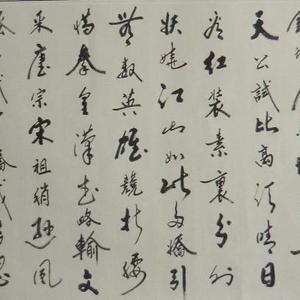 天公試比高須晴日
看紅裝素裹分外
妖嬈江山如此多嬌引
無數英雄競折腰
惜秦皇漢武略輸文
采唐宗宋祖稍遜風